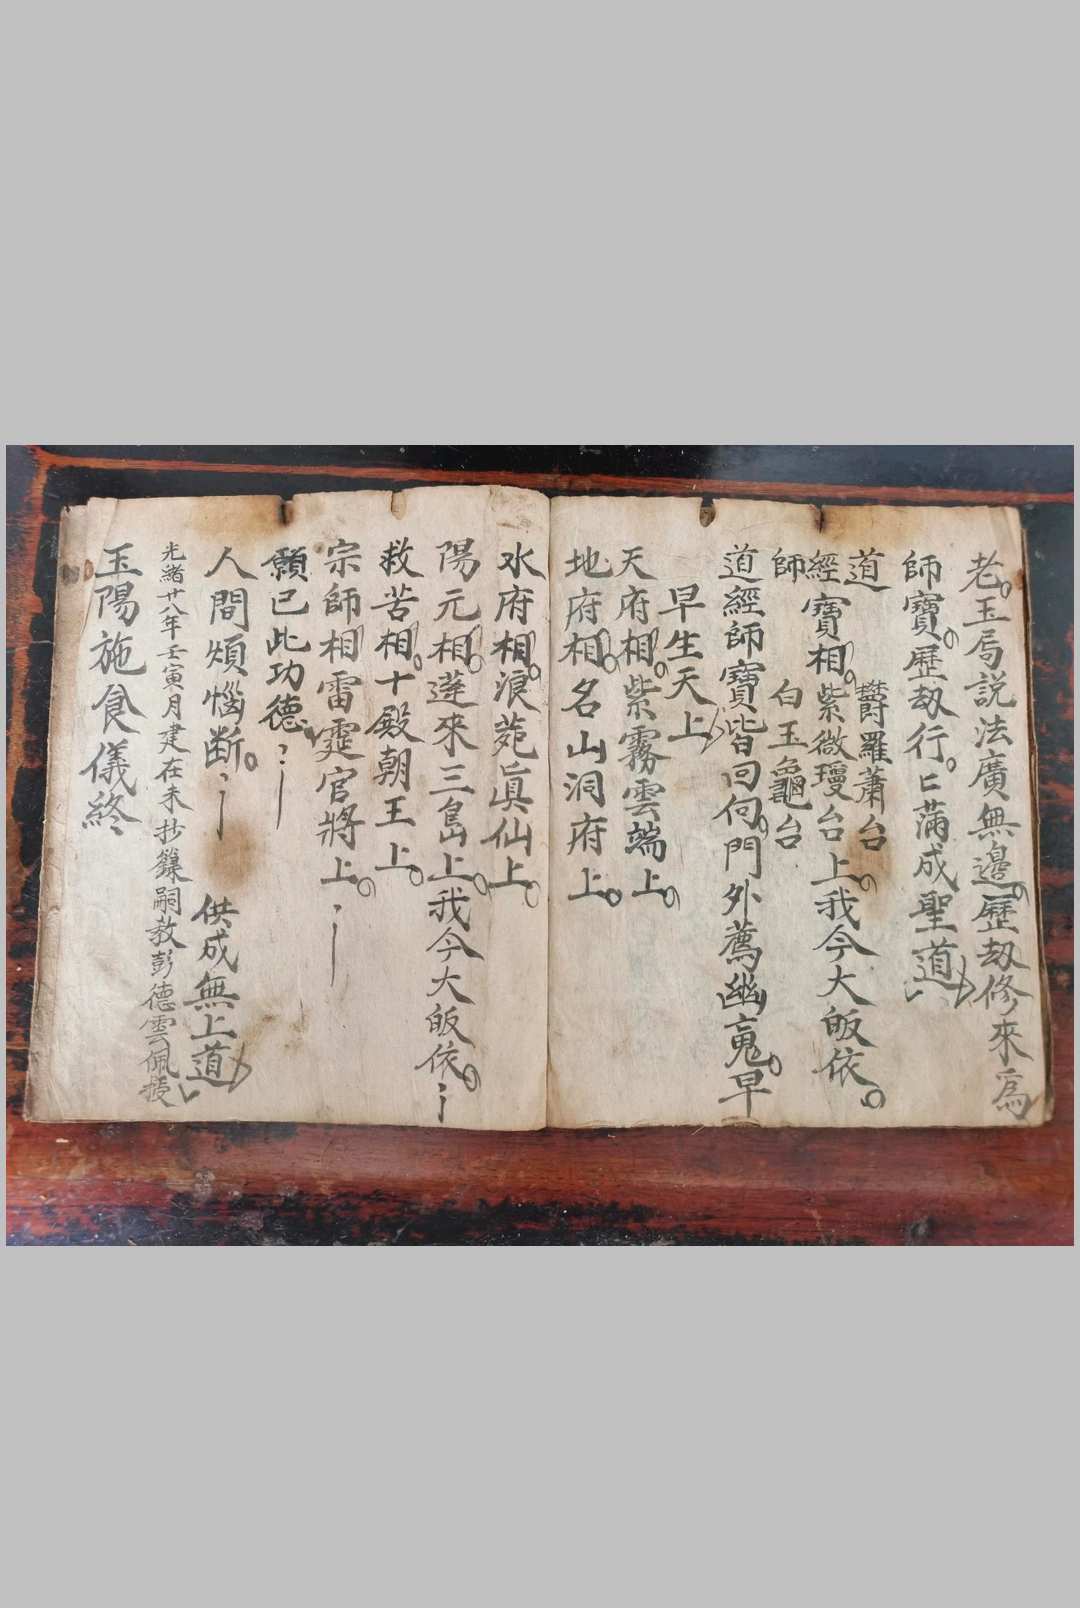 老玉局説法廣無邊歷刼修來爲
師寶歷刼行〻滿成聖道
道 欝羅蕭台
經寶相紫微瓊台上我今大皈依
師 白玉龜台
道經師寶皆回向門外薦幽䰟早
早生天上
天府相紫霧雲端上
地府相名山洞府上
水府相浪菀眞仙上
陽元相蓬來三島上我今大皈依
救苦相十殿朝王上
宗師相雷霆官將上
願已此功德
人間煩惱断 供成無上道
光緒廿八年壬寅月建在未抄錄嗣教彭德雲佩授
玉陽施食儀終